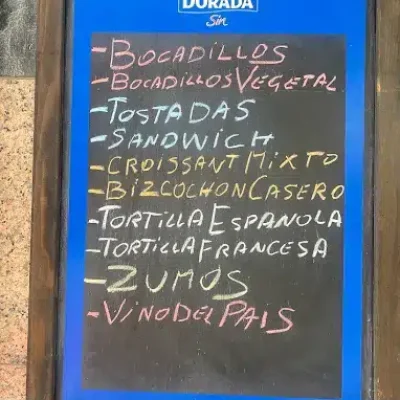 DORADA
Sin
-BOCADILLOS
-BOCADILLOS VEGETAL
-TOSTADAS
-SANDWICH
-CROISSANT MIXTO
-BIZCOCHON CASERO
-TORTILLA ESPANOLA
-TORTILLA FRANCESA
-ZUMOS
-VINO DEL PAIS